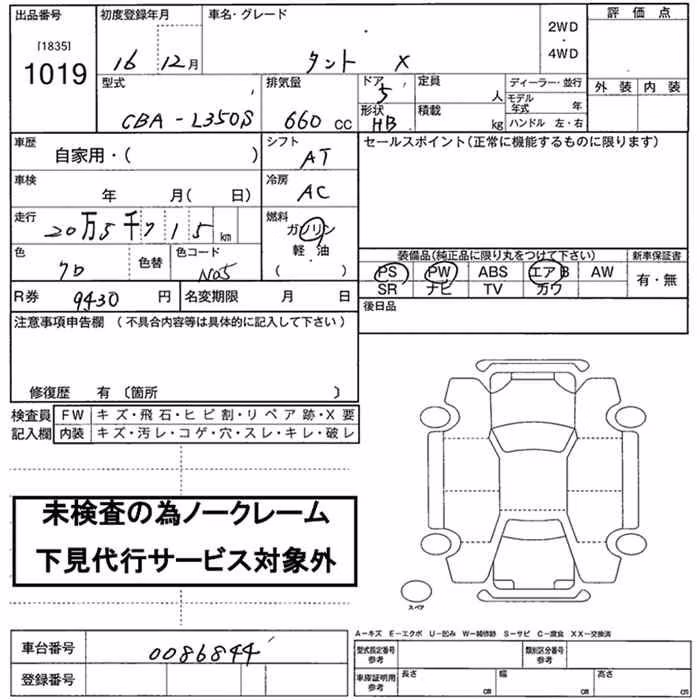 出品番号 初度登録年月 車名・グレード 2WD 評価点
[1835] ・
1019 16 12月 タント X 4WD
型式 排気量 ドア 5 定員 人 ディーラー・並行 外装 内装
モデル年式 年
CBA-L350S 660 CC 形状 HB 積載 kg ハンドル 左・右
車歴 自家用・( ) シフト AT セールスポイント(正常に機能するものに限ります)
車検 年 月( 日) 冷房 AC
走行 20万5千715 km 燃料 ガソリン
軽・油
( )
色 クロ 色替 色コード N05 装備品(純正品に限り丸をつけて下さい) 新車保証書
PS PW ABS エアB AW 有・無
SR ナビ TV カワ
R券 9430 円 名変期限 月 日 後日品
注意事項申告欄 (不具合内容等は具体的に記入して下さい)
修復歴 有 〔箇所 〕
検査員 FW キズ・飛石・ヒビ割・リペア跡・X要
記入欄 内装 キズ・汚レ・コゲ・穴・スレ・キレ・破レ
未検査の為ノークレーム
下見代行サービス対象外
スペア
A-キズ E-エクボ U-凹み W-補修跡 S-サビ C-腐食 XX-交換済
車台番号 0086844 型式指定番号 参考 類別区分番号 参考
登録番号 車庫証明用 参考 長さ cm 幅 cm 高さ cm